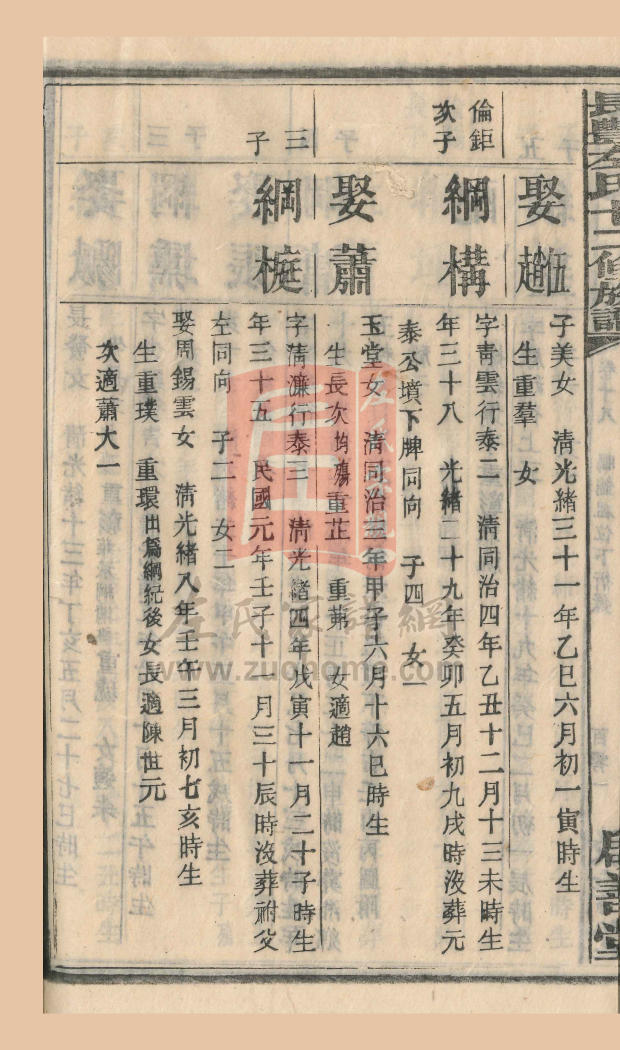 長豐左氏十二修族譜
居善堂
娶趙伍
子美女 清光緒三十一年乙巳六月初一寅時生
生重羣 女
倫鉅次子
綱構
字青雲行泰二 清同治四年乙丑十二月十三未時生
年三十八 光緒二十九年癸卯五月初九戌時沒葬元
泰公墳下脾同向 子四 女一
娶蕭
玉堂女 清同治三年甲子六月十六巳時生
生長次均殤重芷 重苐 女適趙
三子
綱榳
字清濂行泰三 清光緒四年戊寅十一月二十子時生
年三十五 民國元年壬子十一月三十辰時沒葬祔父
左同向 子二 女二
娶周錫雲女 清光緒八年壬午三月初七亥時生
生重璞 重環出爲綱紀後女長適陳世元
次適蕭大一
左氏家譜網
www.zuohome.com